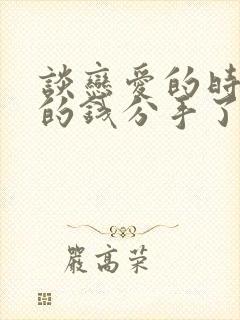 談戀愛的時
的錢分手了
嚴高荣